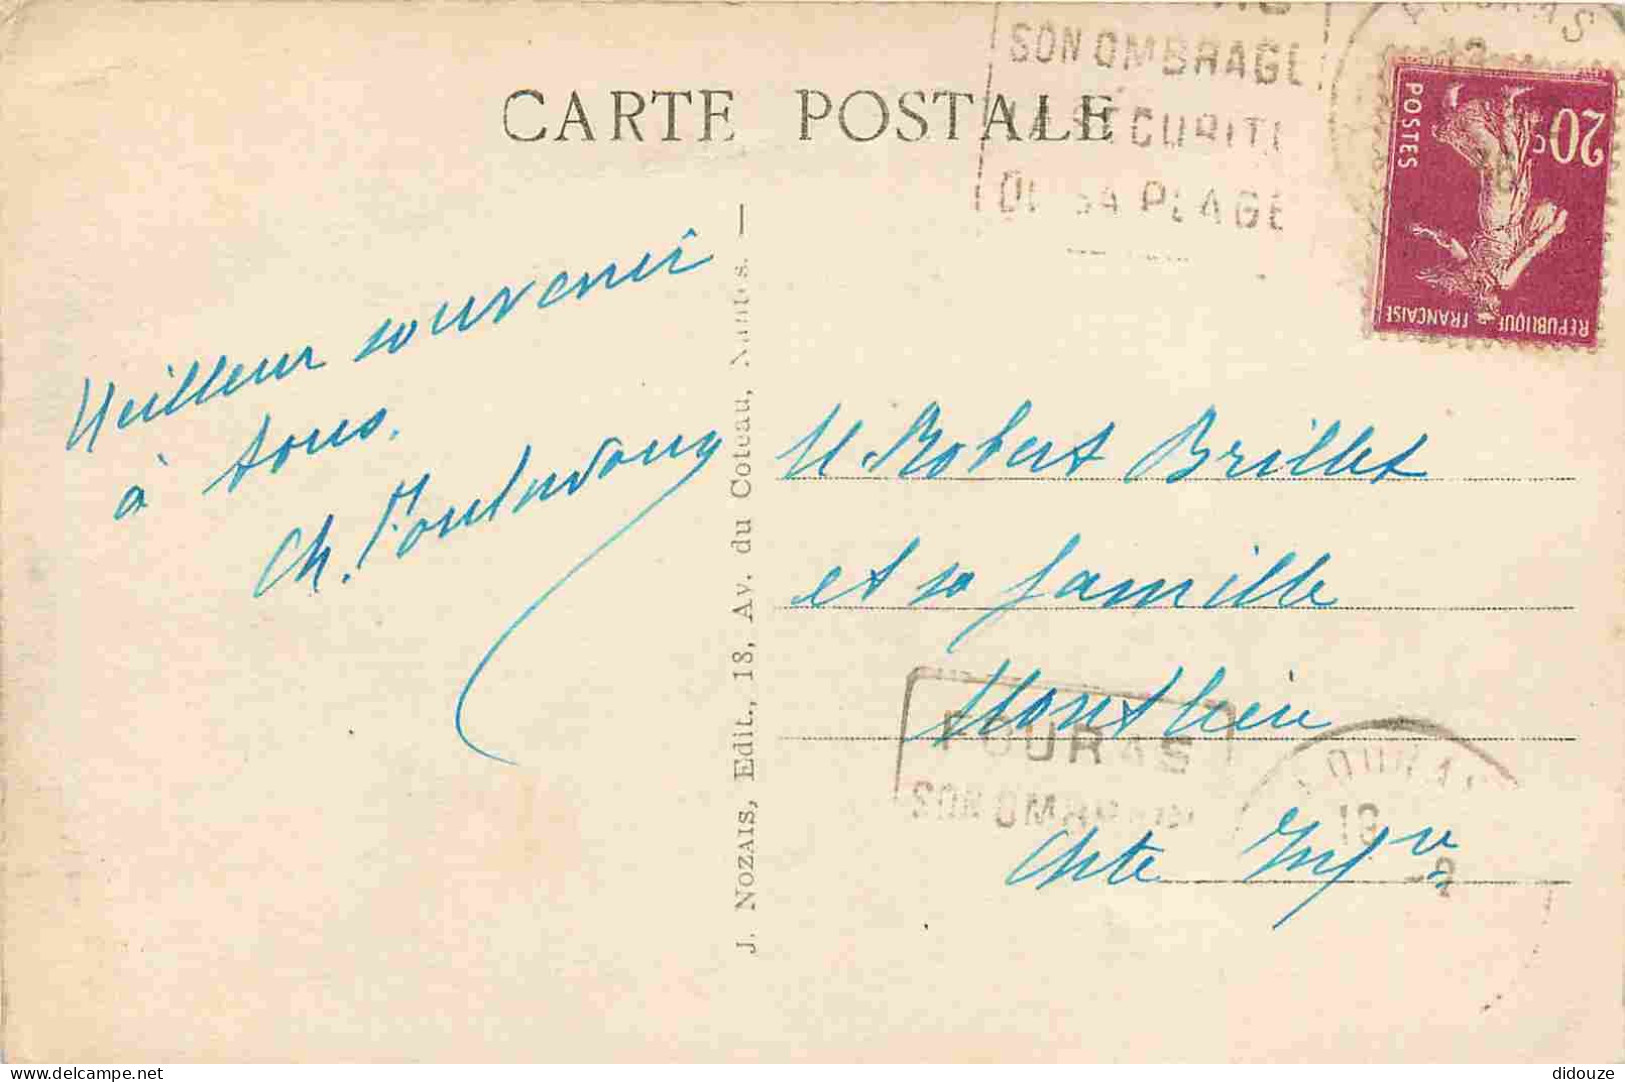 CARTE POSTALE
SON OMBRAGE
SECURITE
DE SA PLAGE
FOURAS
POSTES
20c
REPUBLIQUE FRANÇAISE
Meilleur souvenir
à tous.
Ch.
J. NOZAIS, Edit., 18, Av. du Coteau, Nantes. —
M. Robert Brillet
et sa famille
Montlieu
Chte Infre
FOURAS
SON OMBRAGE
FOURAS
didouze
delcampe.net